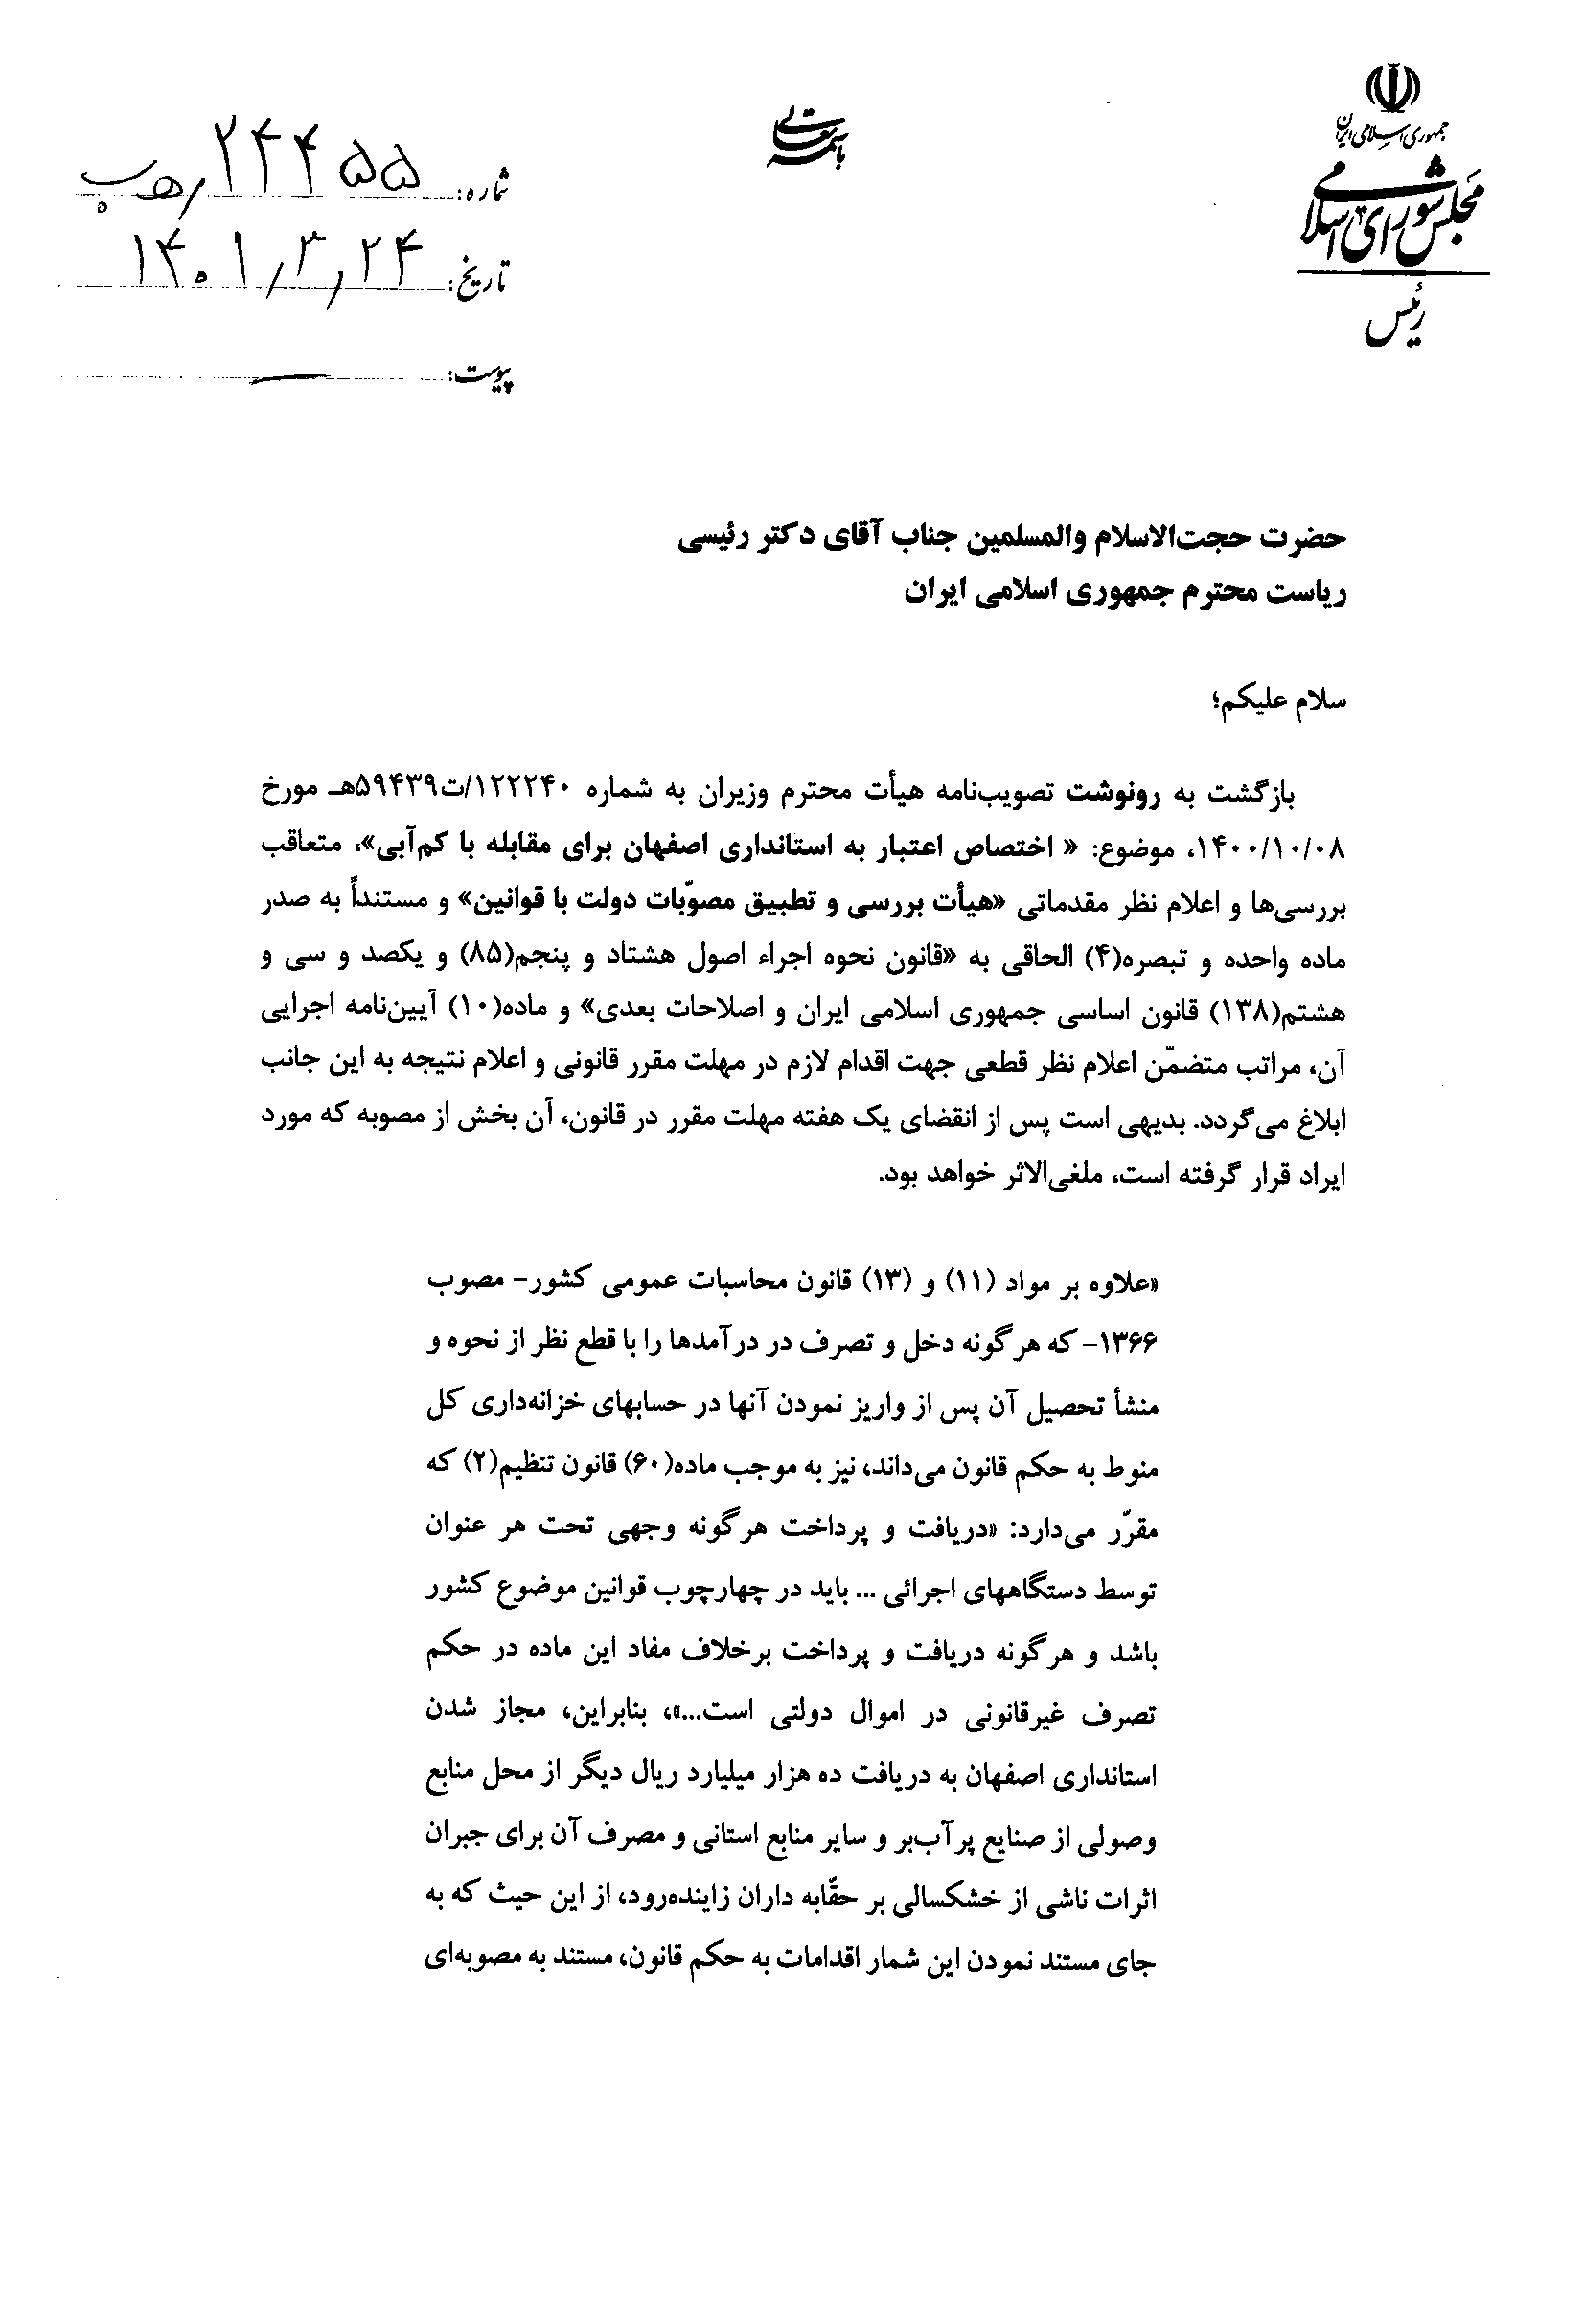 جمهوری اسلامی ایران
مجلس شورای اسلامی
رئیس
باسمه تعالی
شماره: ۲۴۴۵۵/هـ ب
تاریخ: ۱۴۰۱/۳/۲۴
پیوست: ــ
حضرت حجت‌الاسلام والمسلمین جناب آقای دکتر رئیسی
ریاست محترم جمهوری اسلامی ایران
سلام علیکم؛
بازگشت به رونوشت تصویب‌نامه هیأت محترم وزیران به شماره ۱۲۲۲۴۰/ت۵۹۴۳۹هـ مورخ
۱۴۰۰/۱۰/۰۸، موضوع: « اختصاص اعتبار به استانداری اصفهان برای مقابله با کم‌آبی»، متعاقب
بررسی‌ها و اعلام نظر مقدماتی «هیأت بررسی و تطبیق مصوّبات دولت با قوانین» و مستنداً به صدر
ماده واحده و تبصره(۴) الحاقی به «قانون نحوه اجراء اصول هشتاد و پنجم(۸۵) و یکصد و سی و
هشتم(۱۳۸) قانون اساسی جمهوری اسلامی ایران و اصلاحات بعدی» و ماده(۱۰) آیین‌نامه اجرایی
آن، مراتب متضمّن اعلام نظر قطعی جهت اقدام لازم در مهلت مقرر قانونی و اعلام نتیجه به این جانب
ابلاغ می‌گردد. بدیهی است پس از انقضای یک هفته مهلت مقرر در قانون، آن بخش از مصوبه که مورد
ایراد قرار گرفته است، ملغی‌الاثر خواهد بود.
«علاوه بر مواد (۱۱) و (۱۳) قانون محاسبات عمومی کشور- مصوب
۱۳۶۶- که هرگونه دخل و تصرف در درآمدها را با قطع نظر از نحوه و
منشأ تحصیل آن پس از واریز نمودن آنها در حسابهای خزانه‌داری کل
منوط به حکم قانون می‌داند، نیز به موجب ماده(۶۰) قانون تنظیم(۲) که
مقرّر می‌دارد: «دریافت و پرداخت هرگونه وجهی تحت هر عنوان
توسط دستگاههای اجرائی ... باید در چهارچوب قوانین موضوع کشور
باشد و هرگونه دریافت و پرداخت برخلاف مفاد این ماده در حکم
تصرف غیرقانونی در اموال دولتی است...»، بنابراین، مجاز شدن
استانداری اصفهان به دریافت ده هزار میلیارد ریال دیگر از محل منابع
وصولی از صنایع پرآب‌بر و سایر منابع استانی و مصرف آن برای جبران
اثرات ناشی از خشکسالی بر حقّابه داران زاینده‌رود، از این حیث که به
جای مستند نمودن این شمار اقدامات به حکم قانون، مستند به مصوبه‌ای